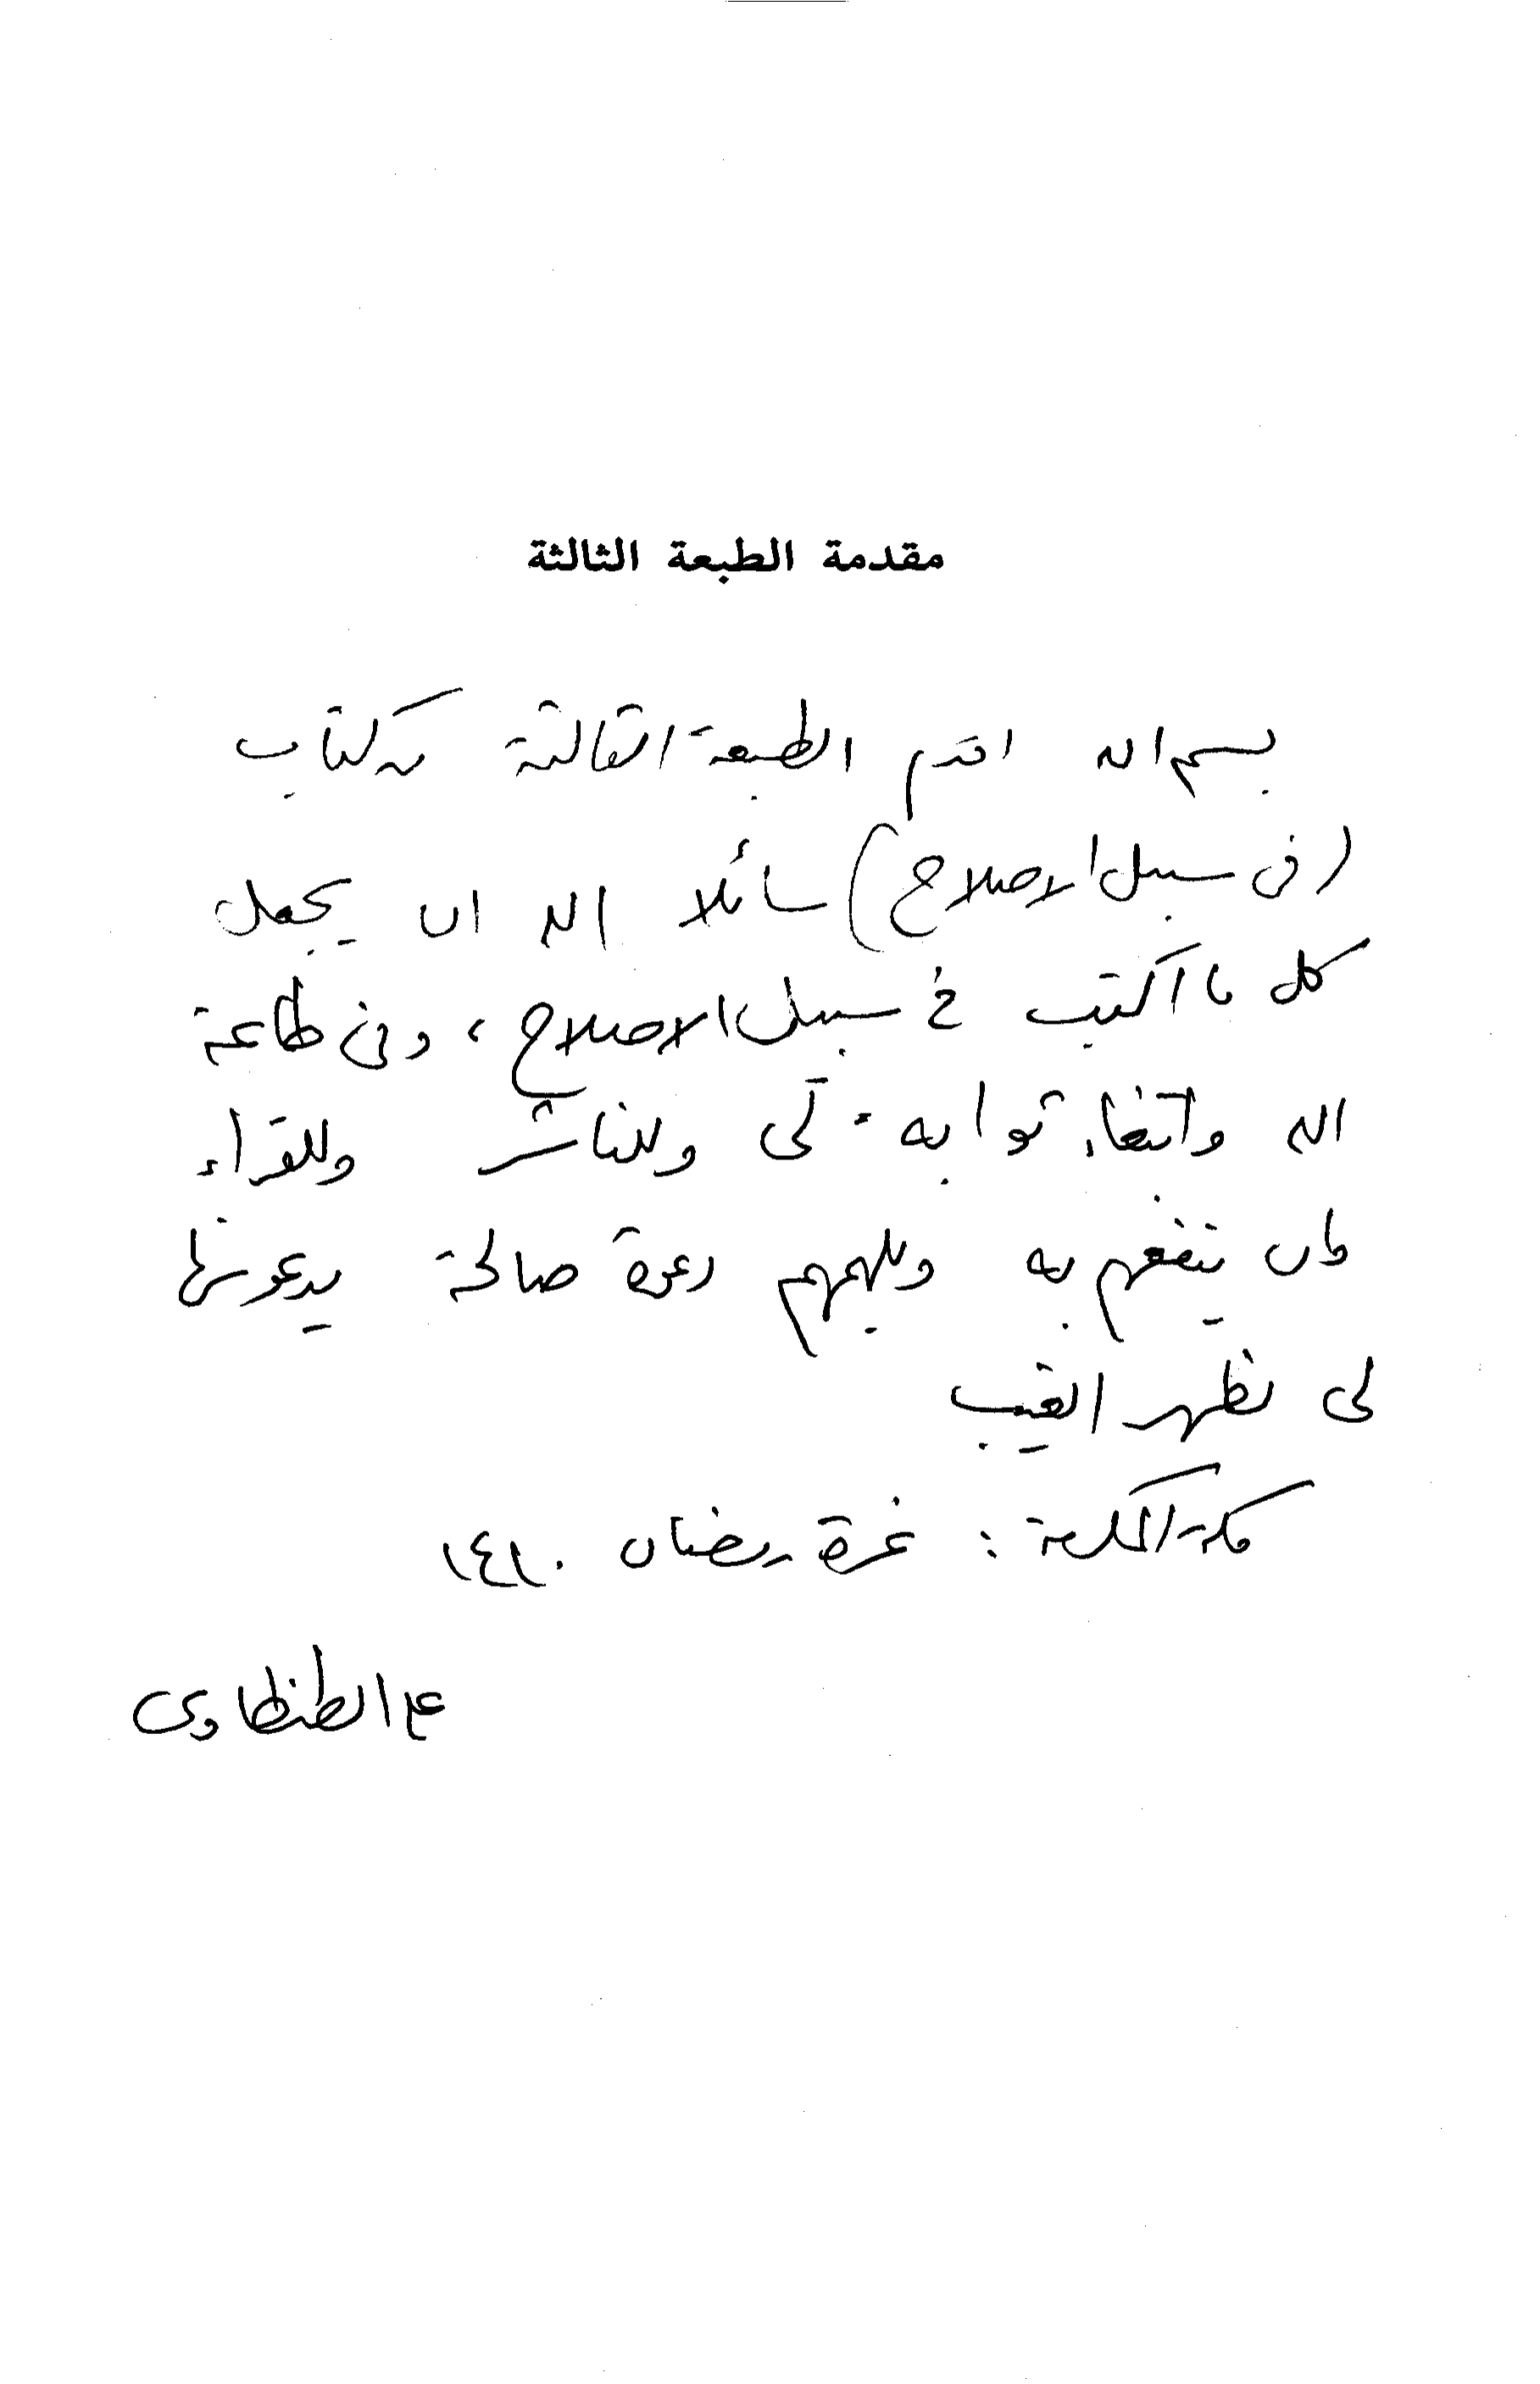 مقدمة الطبعة الثالثة
بسم الله اقدم الطبعة الثالثة من كتاب
(في سبيل الاصلاح) سائلا الله ان يجعل
كل ما اكتب في سبيل الاصلاح، وفي طاعة
الله وابتغاء ثوابه لي وللناشر وللقراء
وان ينفعهم به ويلهمهم دعوة صالحة يدعونها
لي بظهر الغيب
مكة المكرمة: غرة رمضان ١٤١٠
علي الطنطاوي